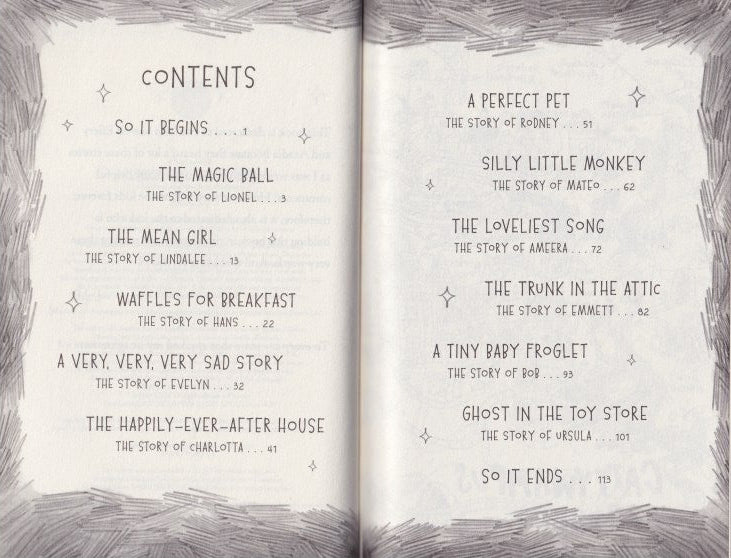 CONTENTS
SO IT BEGINS . . . 1
THE MAGIC BALL
THE STORY OF LIONEL . . . 3
THE MEAN GIRL
THE STORY OF LINDALEE . . . 13
WAFFLES FOR BREAKFAST
THE STORY OF HANS . . . 22
A VERY, VERY, VERY SAD STORY
THE STORY OF EVELYN . . . 32
THE HAPPILY-EVER-AFTER HOUSE
THE STORY OF CHARLOTTA . . . 41
A PERFECT PET
THE STORY OF RODNEY . . . 51
SILLY LITTLE MONKEY
THE STORY OF MATEO . . . 62
THE LOVELIEST SONG
THE STORY OF AMEERA . . . 72
THE TRUNK IN THE ATTIC
THE STORY OF EMMETT . . . 82
A TINY BABY FROGLET
THE STORY OF BOB . . . 93
GHOST IN THE TOY STORE
THE STORY OF URSULA . . . 101
SO IT ENDS . . . 113